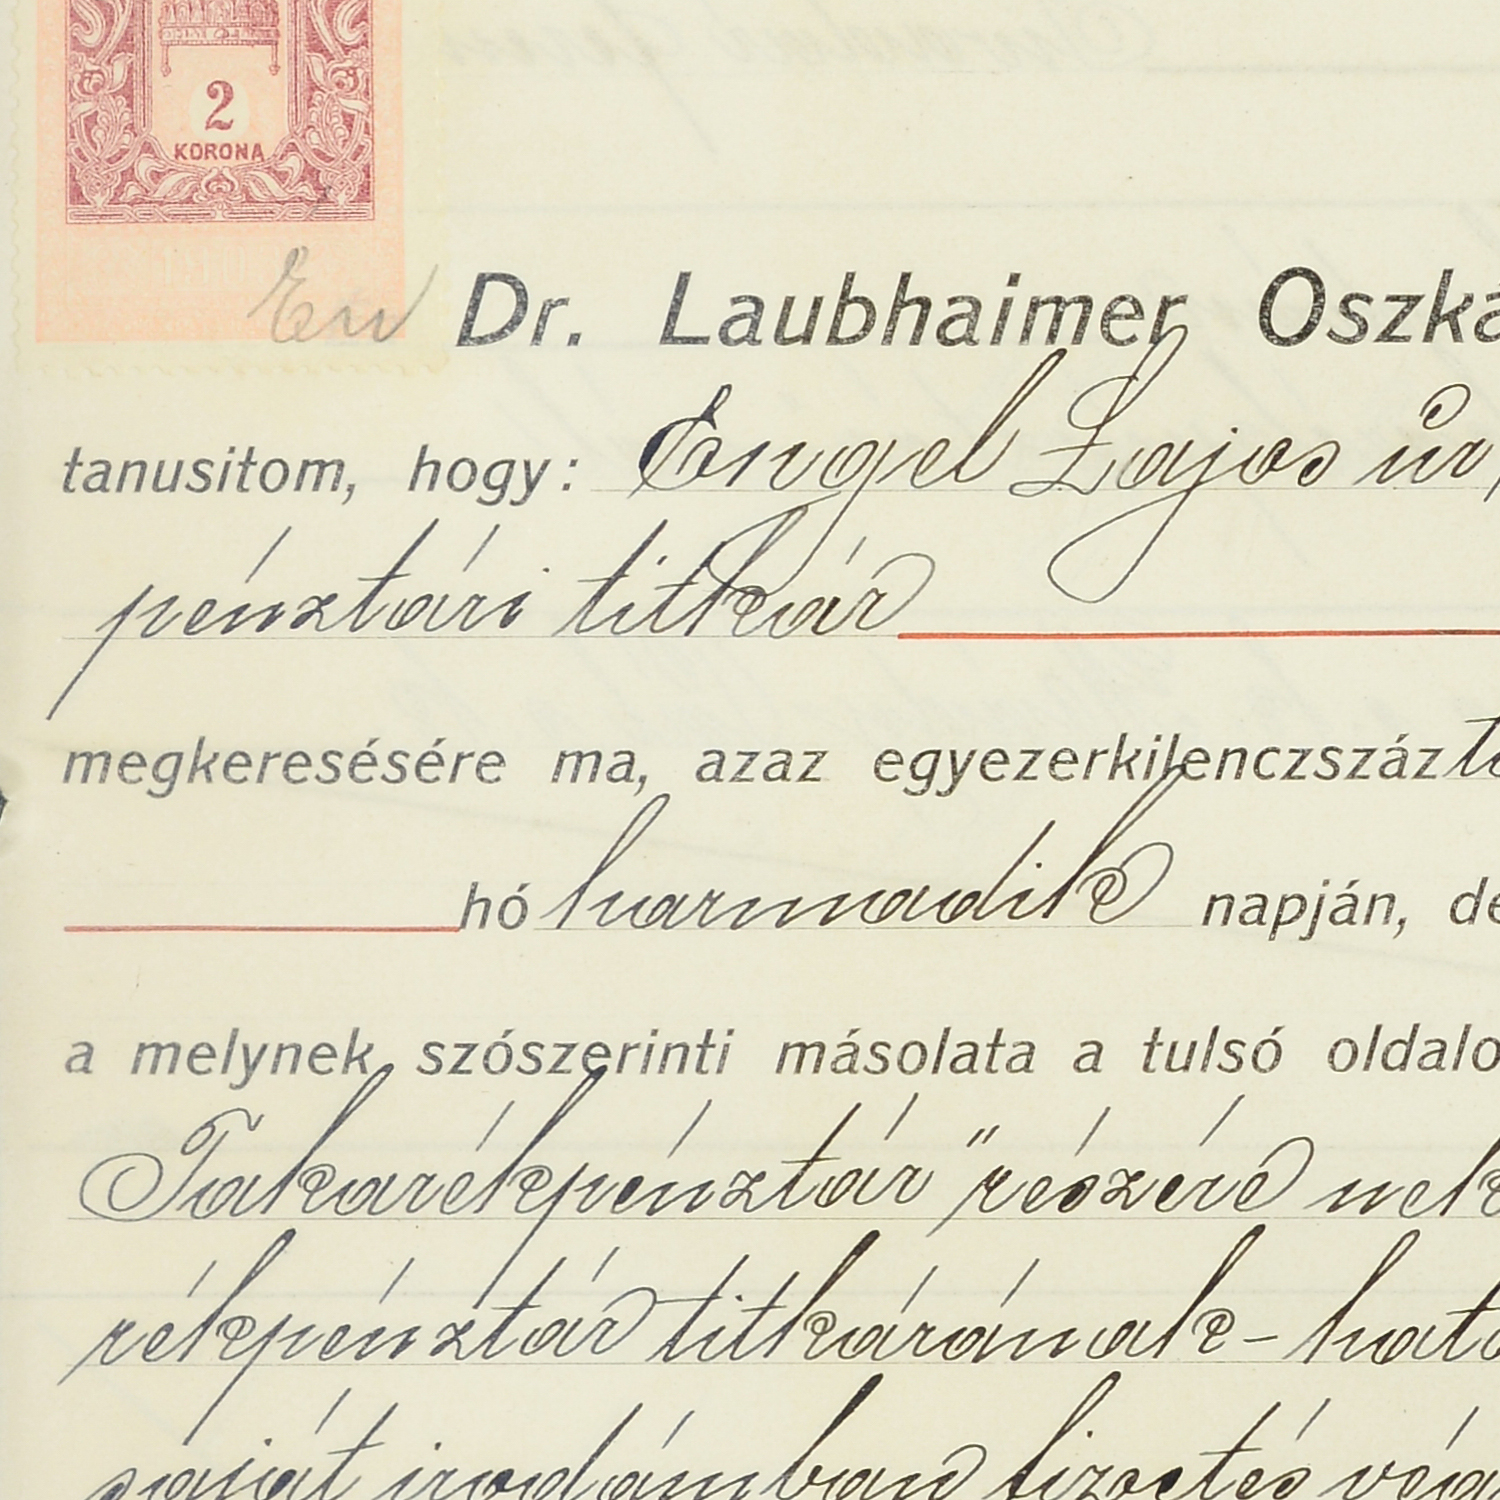 2
KORONA
Én Dr. Laubhaimer Oszká
tanusitom, hogy: Engel Lajos úr,
pénztári titkár
megkeresésére ma, azaz egyezerkilenczszáz
hó harmadik napján, de
a melynek szószerinti másolata a tulsó oldalo
Takarékpénztár" részére nek
rékpénztár titkárának - ható
saját irodámban fizetés vég